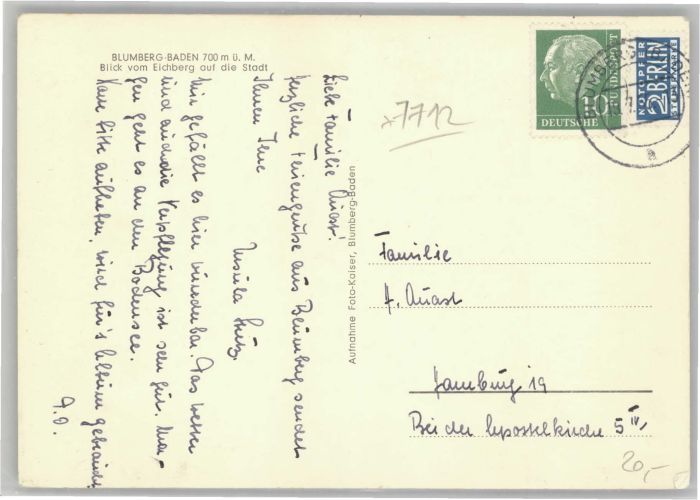 BLUMBERG-BADEN 700 m ü. M.
Blick vom Eichberg auf die Stadt
Liebe Familie Quast!
Herzliche Feriengrüße aus Blumberg sendet
Ihnen Ihre
Ursula
Mir gefällt es hier wunderbar. Das Wetter
und auch die Verpflegung ist sehr gut. Mor-
gen geht es an den Bodensee.
Karte bitte aufheben, wird für's Album gebraucht
Aufnahme Foto-Kaiser, Blumberg-Baden
7712
10
DEUTSCHE
BUNDESPOST
NOTOPFER
2 BERLIN
STEUERMARKE
a
Familie
A. Quast
Hamburg 19
Bei der Apostelkirche 5 IV,
20,-